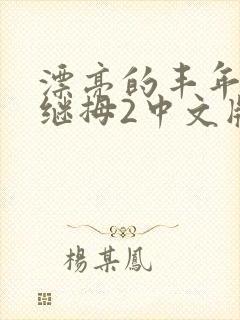 漂亮的丰年
继拇2中文版
楊某鳳